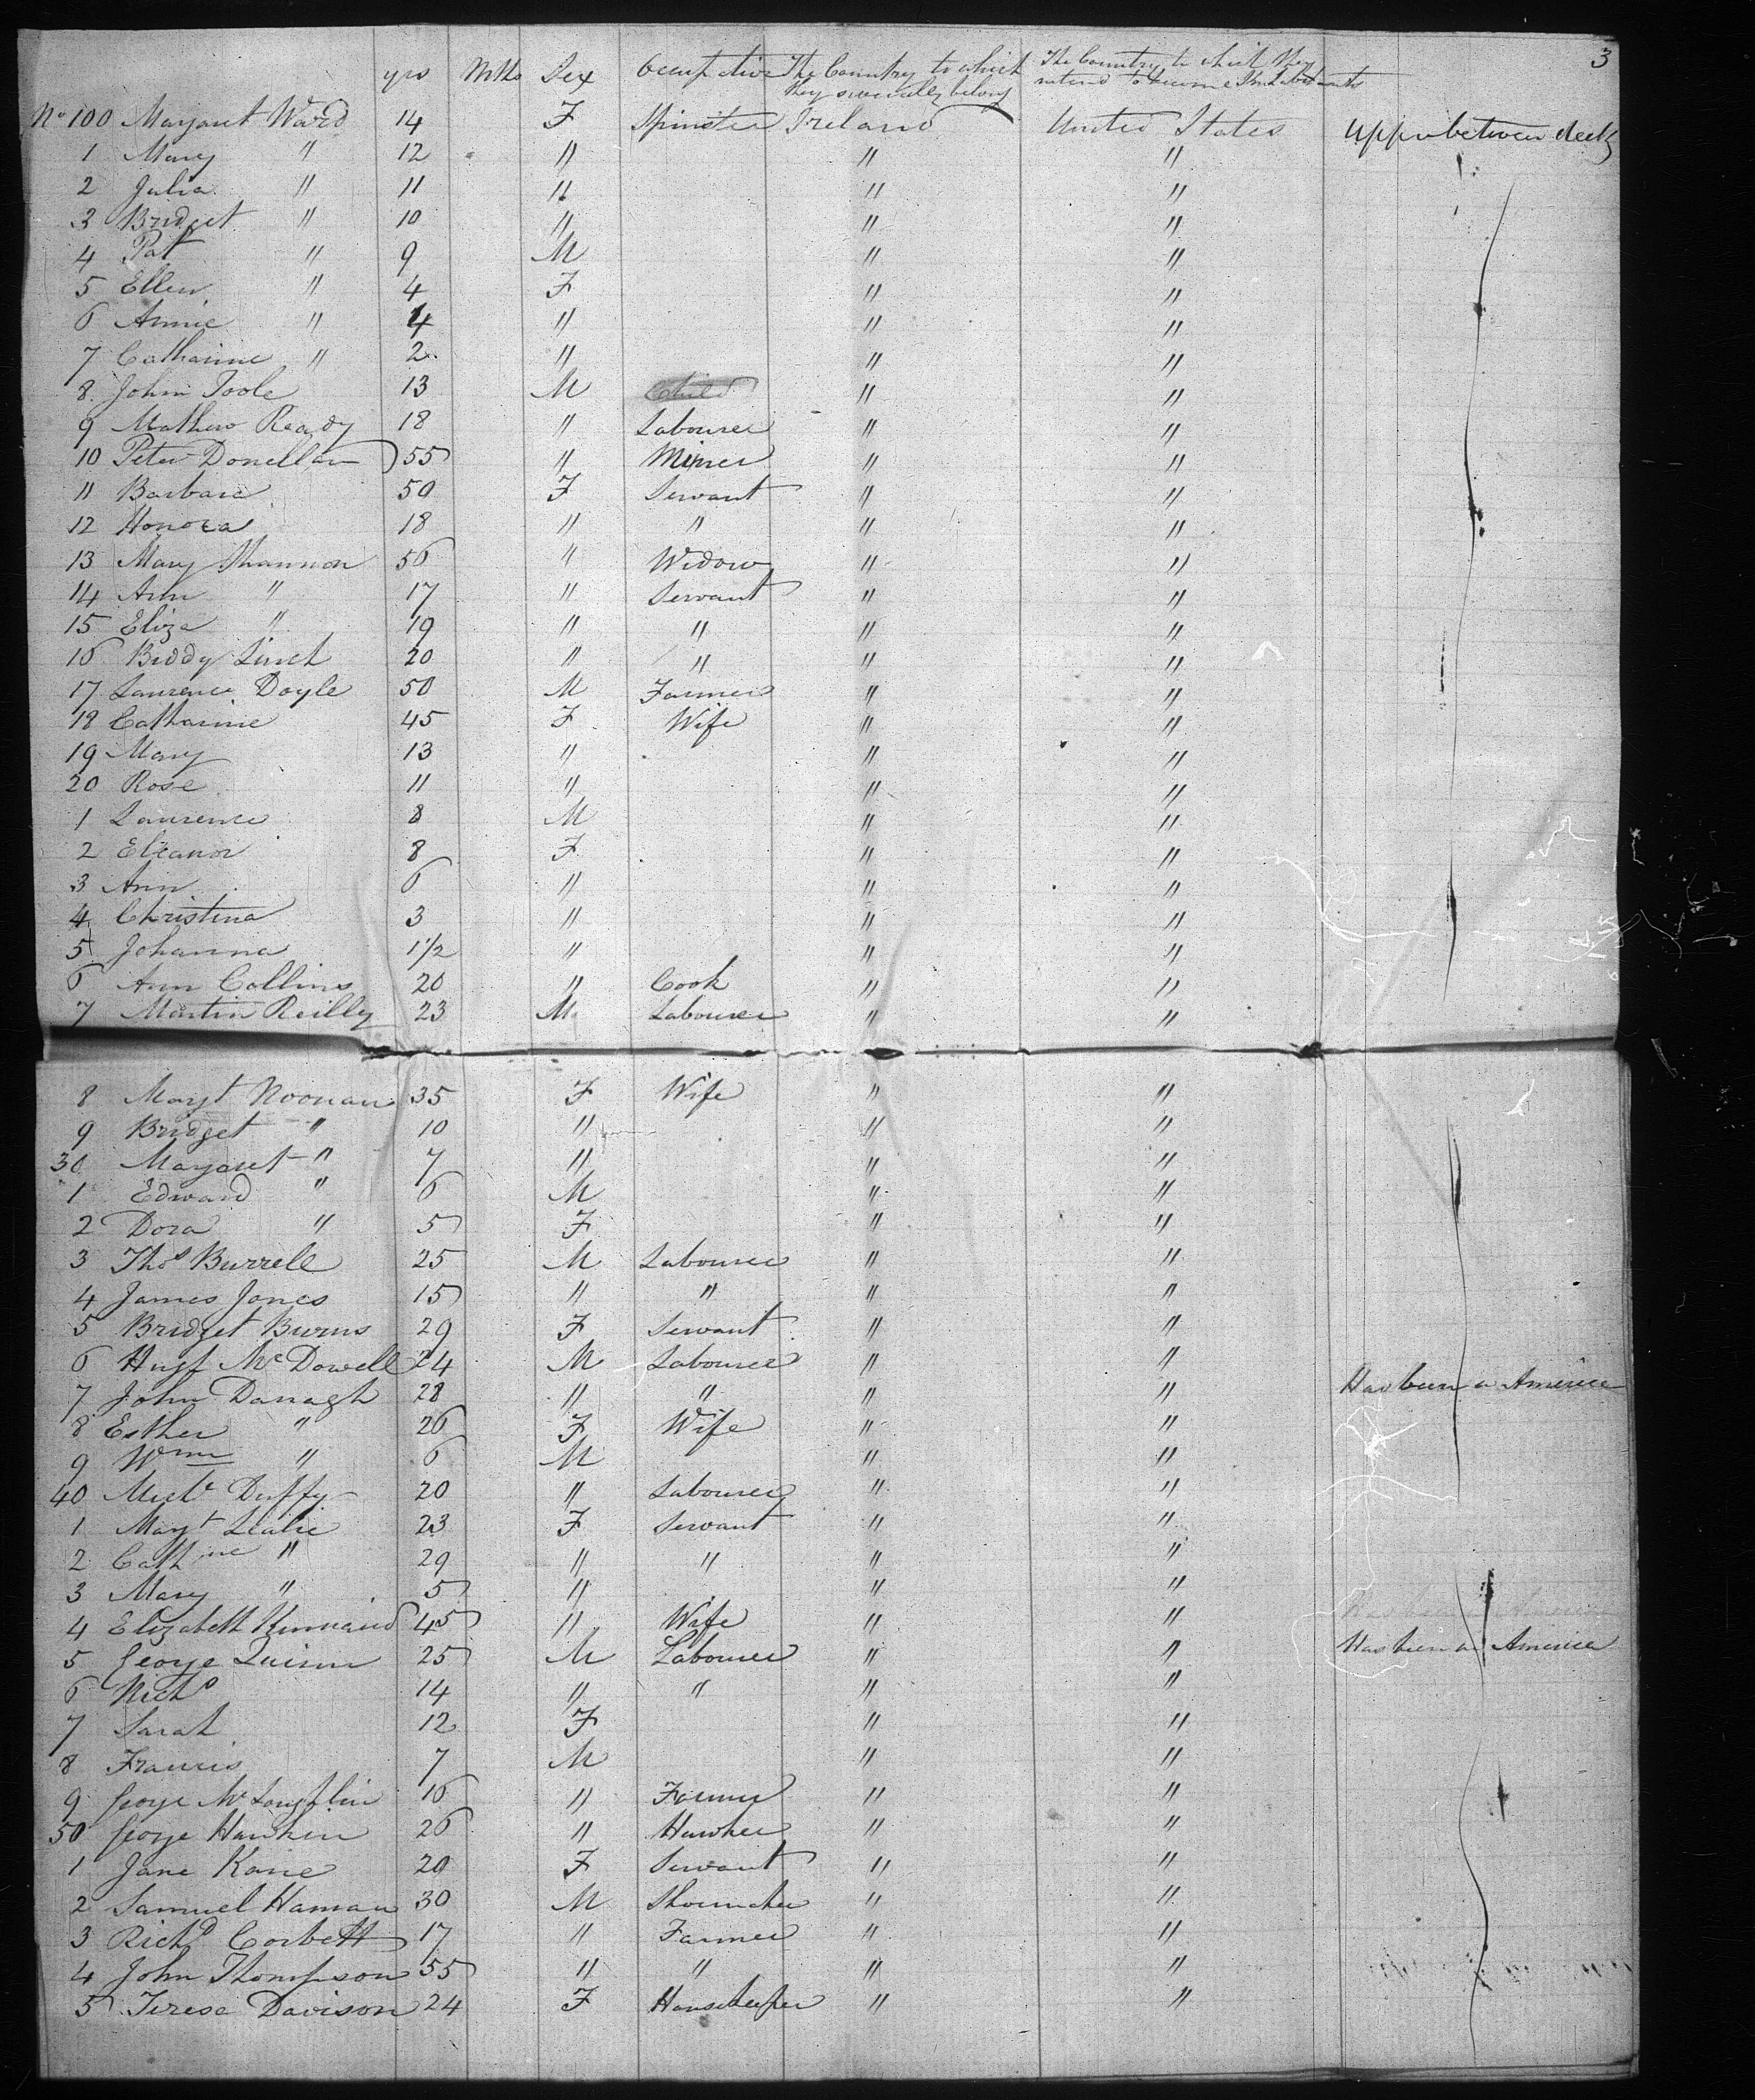 3
yrs Mths Sex Occupation The Country to which they severally belong The Country to which they intend to become Inhabitants
No 100 Margaret Ward 14 F Spinster Ireland United States Upper between decks
1 Mary " 12 " " "
2 Julia " 11 " " "
3 Bridget " 10 " " "
4 Pat " 9 M " "
5 Ellen " 4 F " "
6 Annie " 4 " " "
7 Catharine " 2 " " "
8 John Toole 13 M Child " "
9 Mathew Ready 18 " Labourer " "
10 Peter Donellan 55 " Miner " "
11 Barbara 50 F Servant " "
12 Honora 18 " " " "
13 Mary Shannon 56 " Widow " "
14 Ann " 17 " Servant " "
15 Eliza " 19 " " " "
16 Biddy Linch 20 " " " "
17 Laurence Doyle 50 M Farmer " "
18 Catharine 45 F Wife " "
19 Mary 13 " " "
20 Rose 11 " " "
1 Laurence 8 M " "
2 Eleanor 8 F " "
3 Ann 6 " " "
4 Christina 3 " " "
5 Johanna 1 1/2 " " "
6 Ann Collins 20 " Cook " "
7 Martin Reilly 23 M Labourer " "
8 Margt Noonan 35 F Wife " "
9 Bridget " 10 " " "
30 Margaret " 7 " " "
1 Edward " 6 M " "
2 Dora " 5 F " "
3 Thos Burrell 25 M Labourer " "
4 James Jones 15 " " " "
5 Bridget Burns 29 F Servant " "
6 Hugh McDowell 24 M Labourer " "
7 John Danagh 28 " " " " Has been in America
8 Esther " 26 F Wife " "
9 Wm " 6 M " "
40 Michl Duffy 20 " Labourer " "
1 Margt 23 F Servant " "
2 Cathine " 29 " " " "
3 Mary " 5 " " "
4 Elizabeth 45 " Wife " "
5 George Quinn 25 M Labourer " " Has been in America
6 Nichs 14 " " " "
7 Sarah 12 F " "
8 Francis 7 M " "
9 George McLoughlin 16 " Farmer " "
50 George Hankin 26 " Hawker " "
1 Jane Kane 20 F Servant " "
2 Samuel Haman 30 M Shoemaker " "
3 Richd Corbett 17 " Farmer " "
4 John Thompson 55 " " " "
5 Teresa Davison 24 F Housekeeper " "